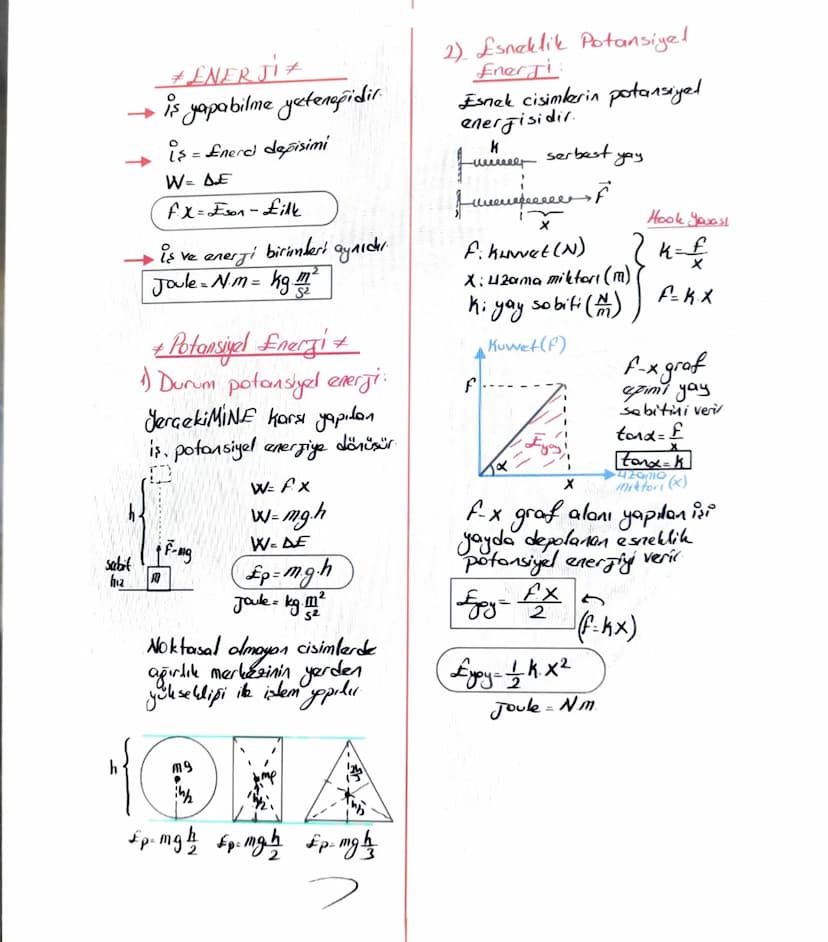 * ENERJİ *
→ İş yapabilme yeteneğidir.
→ İş = Enerci değişimi
W = ΔE
F.X = Eson - Eilk
→ İş ve enerji birimleri aynıdır.
Joule = N.m = kg m²/s²
* Potansiyel Enerji *
1) Durum potansiyel enerji:
YerçekiMİNE karşı yapılan
iş, potansiyel enerjiye dönüşür.
h
F=mg
sabit
hız
m
W = F.X
W = mg.h
W = ΔE
Ep = mg.h
Joule = kg.m²/s²
Noktasal olmayan cisimlerde
ağırlık merkezinin yerden
yüksekliği ile işlem yapılır.
h
mg
h/2
mg
h/2
2h/3
h/3
Ep = mg h/2
Ep = mg h/2
Ep = mg h/3
2) Esneklik Potansiyel
Enerji:
Esnek cisimlerin potansiyel
enerjisidir.
k
serbest yay
F
x
F: kuvvet (N)
x: uzama miktarı (m)
k: yay sabiti (N/m)
Hook Yasası
k = F/x
F = k.x
Kuvvet (F)
F
Eyay
α
x
uzama
miktarı (x)
F-x graf
eğimi yay
sabitini verir
tanα = F/x
tanα = k
F-x graf alanı yapılan işi
yayda depolanan esneklik
potansiyel enerjiyi verir
Eyay = F.X/2
(F=kx)
Eyay = 1/2 k.x²
Joule = N.m